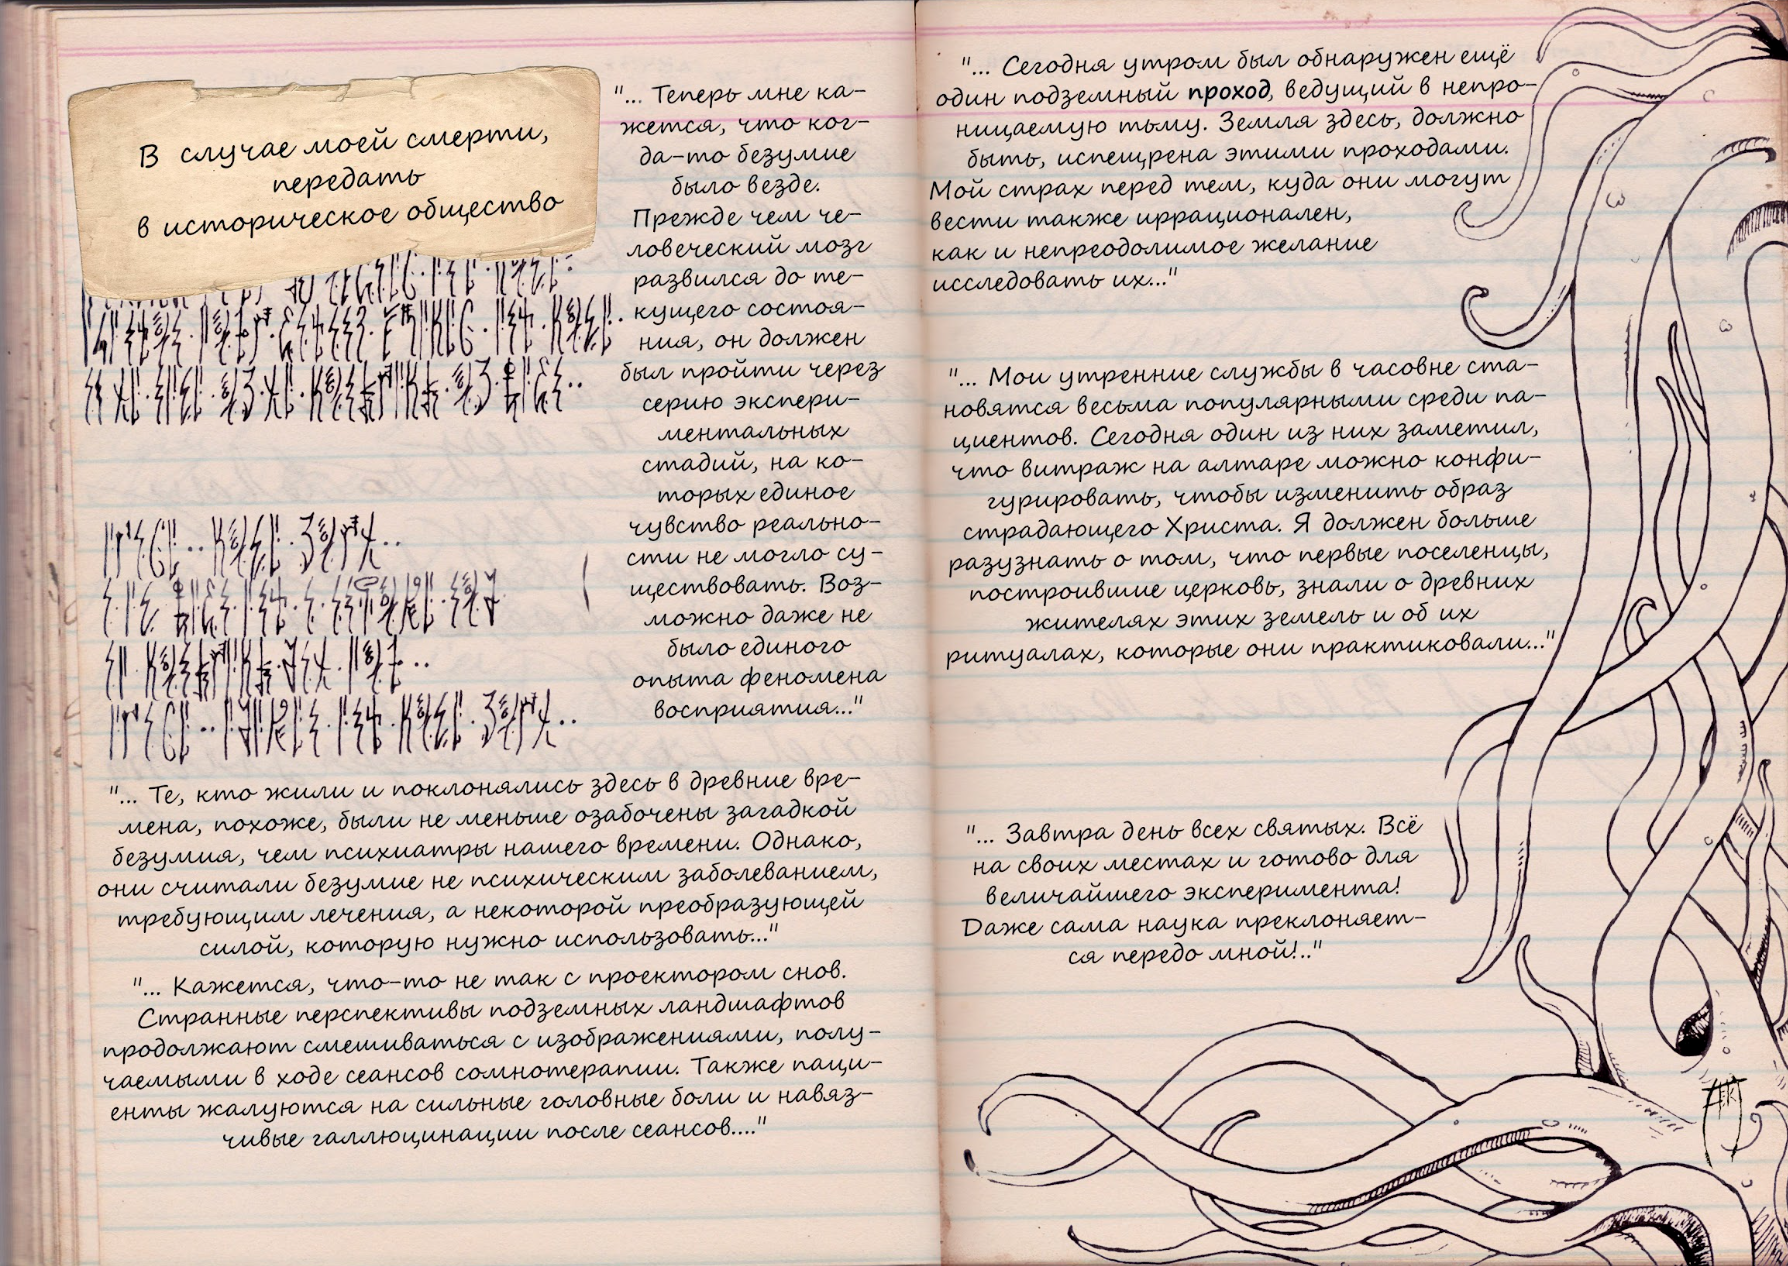 В случае моей смерти,
передать
в историческое общество
"... Теперь мне ка-
жется, что ког-
да-то безумие
было везде.
Прежде чем че-
ловеческий мозг
развился до те-
кущего состоя-
ния, он должен
был пройти через
серию экспери-
ментальных
стадий, на ко-
торых единое
чувство реально-
сти не могло су-
ществовать. Воз-
можно даже не
было единого
опыта феномена
восприятия..."
"... Те, кто жили и поклонялись здесь в древние вре-
мена, похоже, были не меньше озабочены загадкой
безумия, чем психиатры нашего времени. Однако,
они считали безумие не психическим заболеванием,
требующим лечения, а некоторой преобразующей
силой, которую нужно использовать..."
"... Кажется, что-то не так с проектором снов.
Странные перспективы подземных ландшафтов
продолжают смешиваться с изображениями, полу-
чаемыми в ходе сеансов сомнотерапии. Также паци-
енты жалуются на сильные головные боли и навяз-
чивые галлюцинации после сеансов...."
"... Сегодня утром был обнаружен ещё
один подземный проход, ведущий в непро-
ницаемую тьму. Земля здесь, должно
быть, испещрена этими проходами.
Мой страх перед тем, куда они могут
вести также иррационален,
как и непреодолимое желание
исследовать их..."
"... Мои утренние службы в часовне ста-
новятся весьма популярными среди па-
циентов. Сегодня один из них заметил,
что витраж на алтаре можно конфи-
гурировать, чтобы изменить образ
страдающего Христа. Я должен больше
разузнать о том, что первые поселенцы,
построившие церковь, знали о древних
жителях этих земель и об их
ритуалах, которые они практиковали..."
"... Завтра день всех святых. Всё
на своих местах и готово для
величайшего эксперимента!
Даже сама наука преклоняет-
ся передо мной!.."